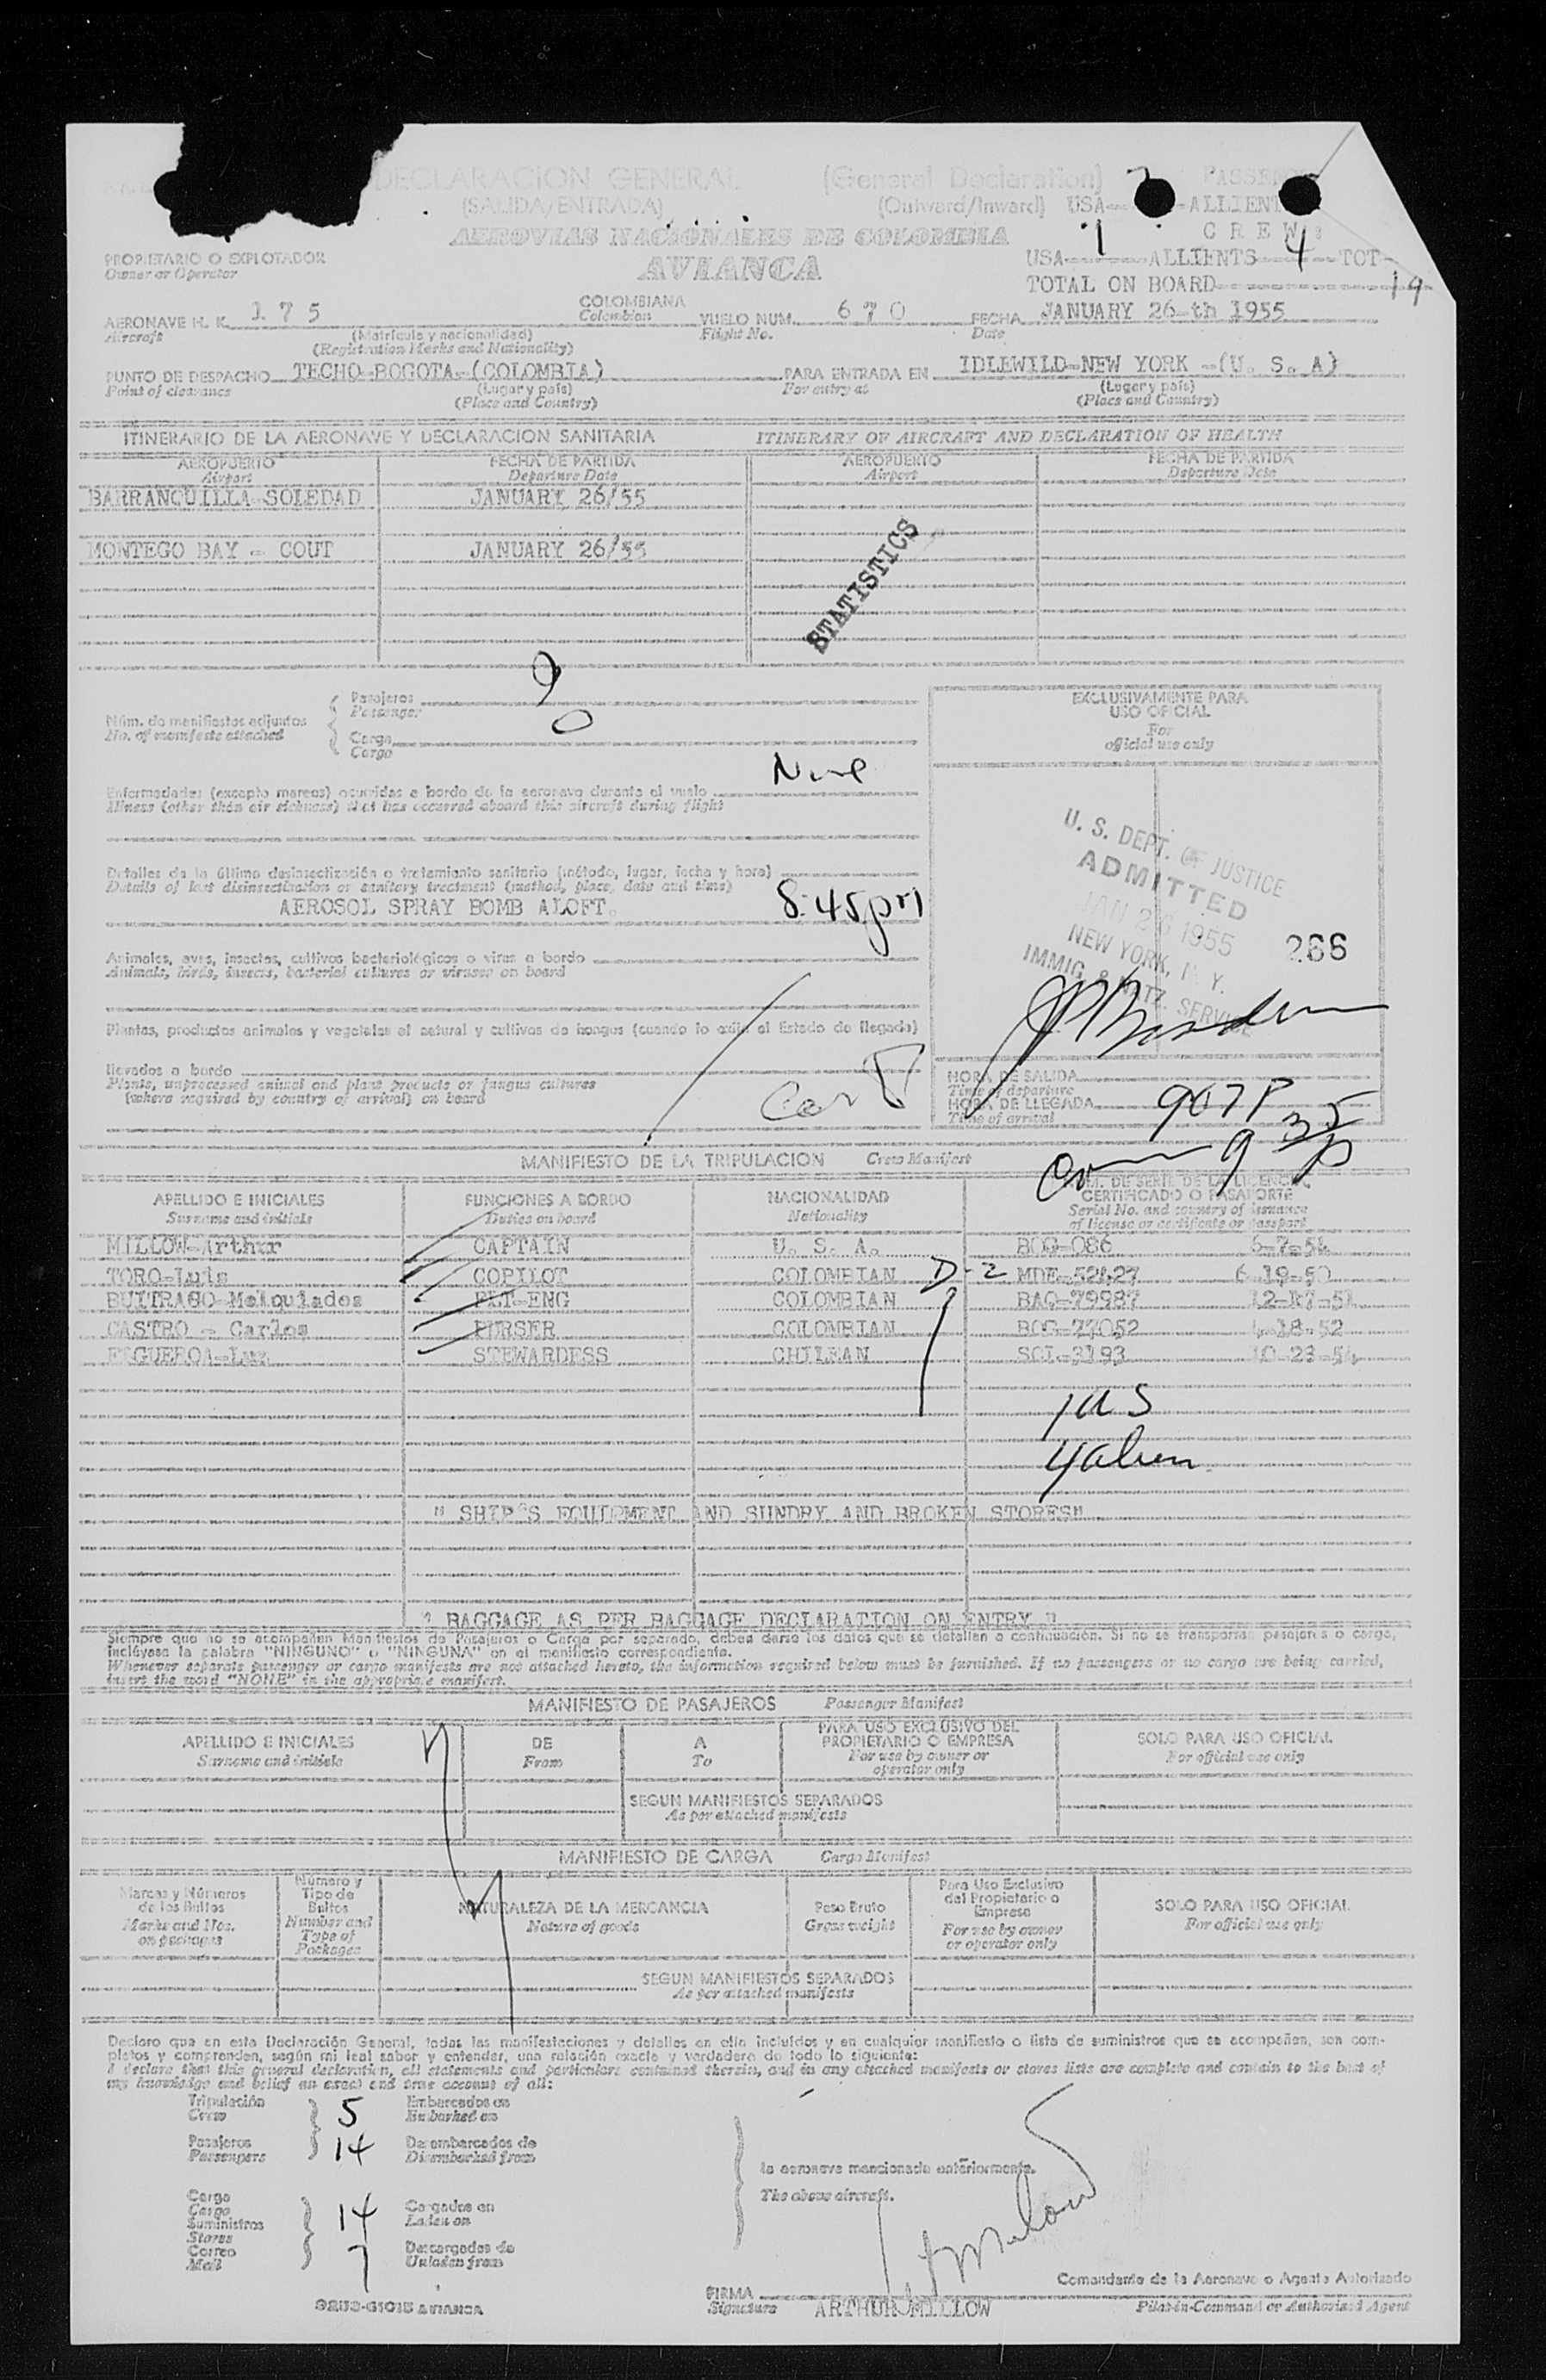 DECLARACION GENERAL (General Declaration)
(SALIDA/ENTRADA) (Outward/Inward) USA ALLIENT
AEROVIAS NACIONALES DE COLOMBIA C R E W :
PROPIETARIO O EXPLOTADOR AVIANCA USA 1 ALLIENTS 4 TOT
Owner or Operator
TOTAL ON BOARD 19
AERONAVE H. K. 175 COLOMBIANA VUELO NUM. 670 FECHA JANUARY 26-th 1955
Aircraft (Matrícula y nacionalidad) Colombian Flight No. Date
(Registration Marks and Nationality)
PUNTO DE DESPACHO TECHO-BOGOTA-(COLOMBIA) PARA ENTRADA EN IDLEWILD-NEW YORK -(U. S. A)
Point of clearance (Lugar y país) For entry at (Lugar y país)
(Place and Country) (Place and Country)
ITINERARIO DE LA AERONAVE Y DECLARACION SANITARIA ITINERARY OF AIRCRAFT AND DECLARATION OF HEALTH
AEROPUERTO FECHA DE PARTIDA AEROPUERTO FECHA DE PARTIDA
Airport Departure Date Airport Departure Date
BARRANQUILLA-SOLEDAD JANUARY 26/55
MONTEGO BAY - COUT JANUARY 26/55
STATISTICS
Núm. de manifiestos adjuntos
No. of manifests attached
Pasajeros
Passenger
Carga 0
Cargo
EXCLUSIVAMENTE PARA
USO OFICIAL
For
official use only
Enfermedades (excepto mareos) ocurridas a bordo de la aeronave durante el vuelo None
Illness (other than air sickness) that has occurred aboard this aircraft during flight
Detalles de la última desinsectización o tratamiento sanitario (método, lugar, fecha y hora)
Details of last disinsectization or sanitary treatment (method, place, date and time)
AEROSOL SPRAY BOMB ALOFT. 8:45pm
U. S. DEPT. OF JUSTICE
ADMITTED
JAN 26 1955
NEW YORK, N. Y.
IMMIG. & NATZ. SERVICE
266
Animales, aves, insectos, cultivos bacteriológicos o virus a bordo
Animals, birds, insects, bacterial cultures or viruses on board
Plantas, productos animales y vegetales al natural y cultivos de hongos (cuando lo exija el Estado de llegada)
llevados a bordo
Plants, unprocessed animal and plant products or fungus cultures
(where required by country of arrival) on board
HORA DE SALIDA
Time of departure
HORA DE LLEGADA 907P
Time of arrival
9 35 p
MANIFIESTO DE LA TRIPULACION Crew Manifest
APELLIDO E INICIALES FUNCIONES A BORDO NACIONALIDAD NUM. DE SERIE DE LA LICENCIA, CERTIFICADO O PASAPORTE
Surname and initials Duties on board Nationality Serial No. and country of issuance of license or certificate or passport
MILLOW-Arthur CAPTAIN U. S. A. BOG-086 6-7-54
TORO-Luis COPILOT COLOMBIAN D-2 MDE-52427 6-19-50
BUITRAGO-Melquiades FLT-ENG COLOMBIAN BAQ-79987 12-17-51
CASTRO - Carlos PURSER COLOMBIAN BOG-77052 4-18-52
FIGUEROA-Luz STEWARDESS CHILEAN SCL-3193 10-23-54
1 US
4 alien
" SHIP'S EQUIPMENT AND SUNDRY AND BROKEN STORES"
" BAGGAGE AS PER BAGGAGE DECLARATION ON ENTRY "
Siempre que no se acompañen Manifiestos de Pasajeros o Carga por separado, deben darse los datos que se detallan a continuación. Si no se transportan pasajeros o carga,
inclúyase la palabra "NINGUNO" o "NINGUNA" en el manifiesto correspondiente.
Whenever separate passenger or cargo manifests are not attached hereto, the information required below must be furnished. If no passengers or no cargo are being carried,
insert the word "NONE" in the appropriate manifest.
MANIFIESTO DE PASAJEROS Passenger Manifest
APELLIDO E INICIALES DE A PARA USO EXCLUSIVO DEL PROPIETARIO O EMPRESA SOLO PARA USO OFICIAL
Surname and initials From To For use by owner or operator only For official use only
SEGUN MANIFIESTOS SEPARADOS
As per attached manifests
MANIFIESTO DE CARGA Cargo Manifest
Marcas y Números de los Bultos Número y Tipo de Bultos NATURALEZA DE LA MERCANCIA Peso Bruto Para Uso Exclusivo del Propietario o Empresa SOLO PARA USO OFICIAL
Marks and Nos. on packages Number and Type of Packages Nature of goods Gross weight For use by owner or operator only For official use only
SEGUN MANIFIESTOS SEPARADOS
As per attached manifests
Declaro que en esta Declaración General, todas las manifestaciones y detalles en ella incluídos y en cualquier manifiesto o lista de suministros que se acompañen, son com-
pletos y comprenden, según mi leal saber y entender, una relación exacta y verdadera de todo lo siguiente:
I declare that this general declaration, all statements and particulars contained therein, and in any attached manifests or stores lists are complete and contain to the best of
my knowledge and belief an exact and true account of all:
Tripulación 5 Embarcados en
Crew Embarked on
Pasajeros 14 Desembarcados de
Passengers Disembarked from
la aeronave mencionada anteriormente.
The above aircraft.
Carga
Cargo
Suministros 14 Cargados en
Stores Laden on
Correo 7 Descargados de
Mail Unladen from
Comandante de la Aeronave o Agente Autorizado
FIRMA
Signature ARTHUR MILLOW Pilot-in-Command or Authorized Agent
AVIANCA